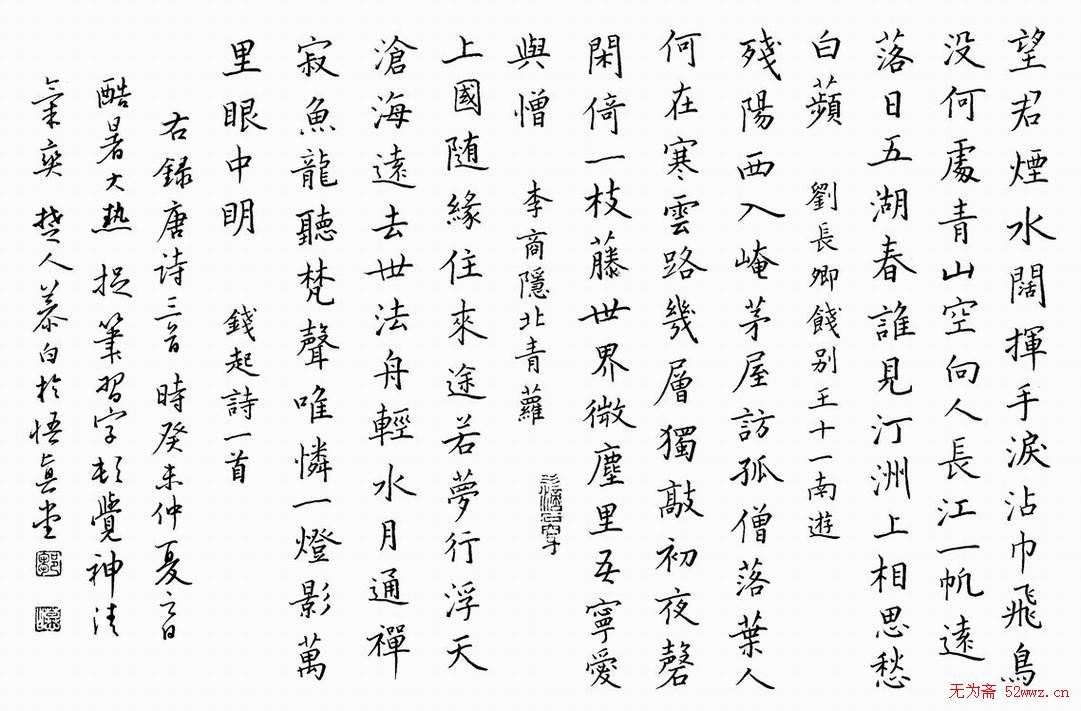 望君煙水闊揮手淚沾巾飛鳥
没何處青山空向人長江一帆遠
落日五湖春誰見汀洲上相思愁
白蘋 劉長卿餞别王十一南遊
殘陽西入崦茅屋訪孤僧落葉人
何在寒雲路幾層獨敲初夜磬
閑倚一枝藤世界微塵里吾寧愛
與憎 李商隱北青蘿
上國随緣住來途若夢行浮天
滄海遠去世法舟輕水月通禪
寂魚龍聽梵聲唯憐一燈影萬
里眼中明 錢起詩一首
右録唐诗三首 時癸未仲夏
酷暑大热 捉筆習字頓覺神清
氣爽 楚人慕白於悟真堂
无为斋 52wwz.cn